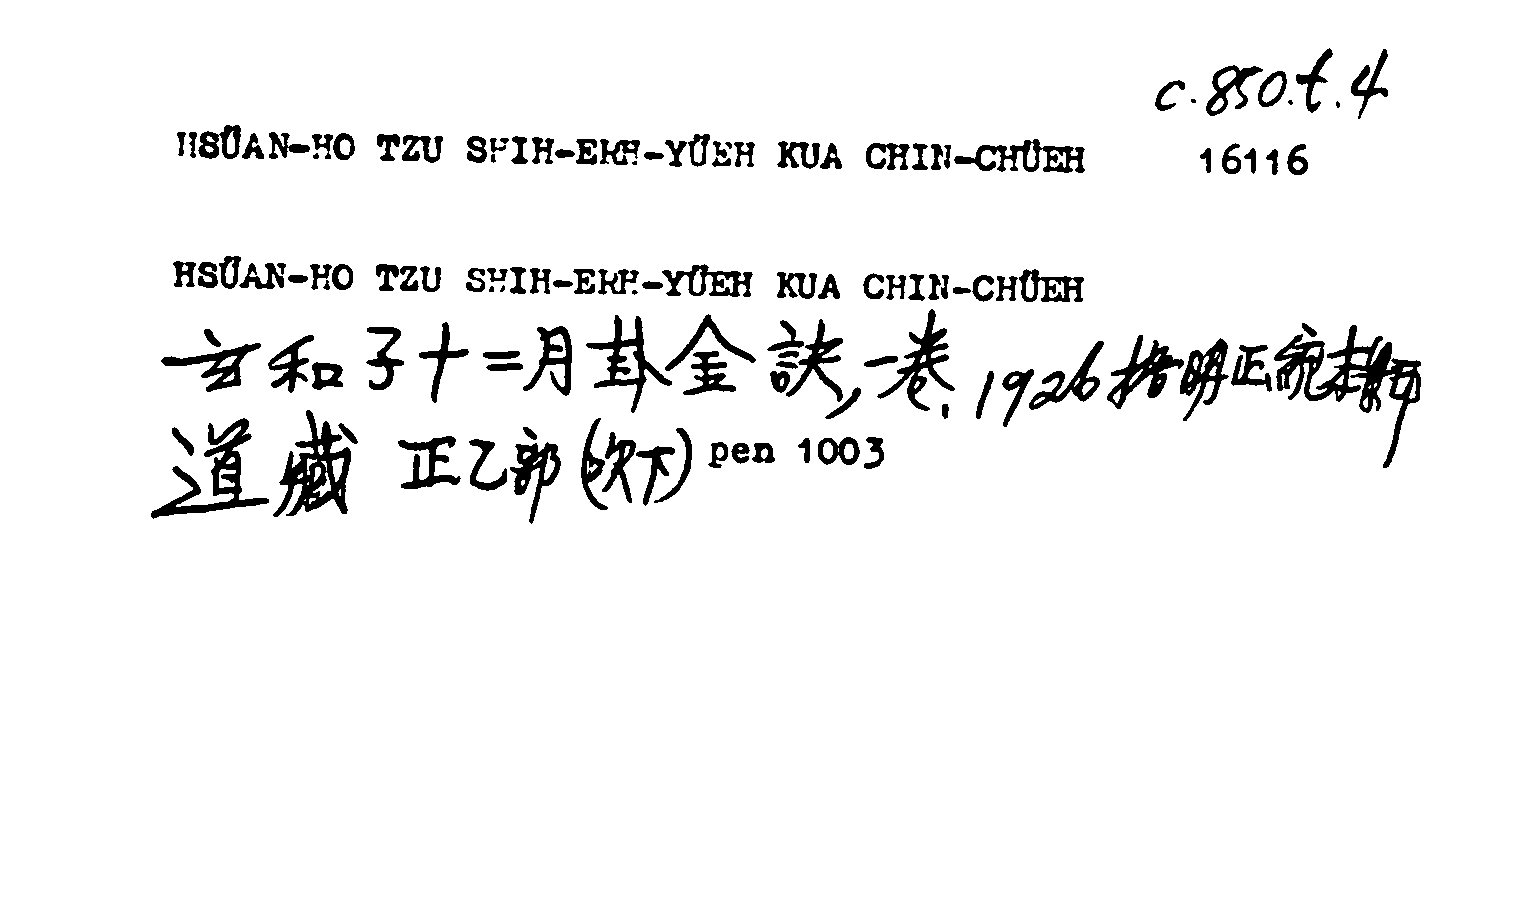 c.850.t.4
HSÜAN-HO TZU SHIH-ERH-YÜEH KUA CHIN-CHÜEH 16116
HSÜAN-HO TZU SHIH-ERH-YÜEH KUA CHIN-CHÜEH
玄和子十二月卦金訣,一卷. 1926 据明正統本影印
道藏 正乙部(吹下) pen 1003